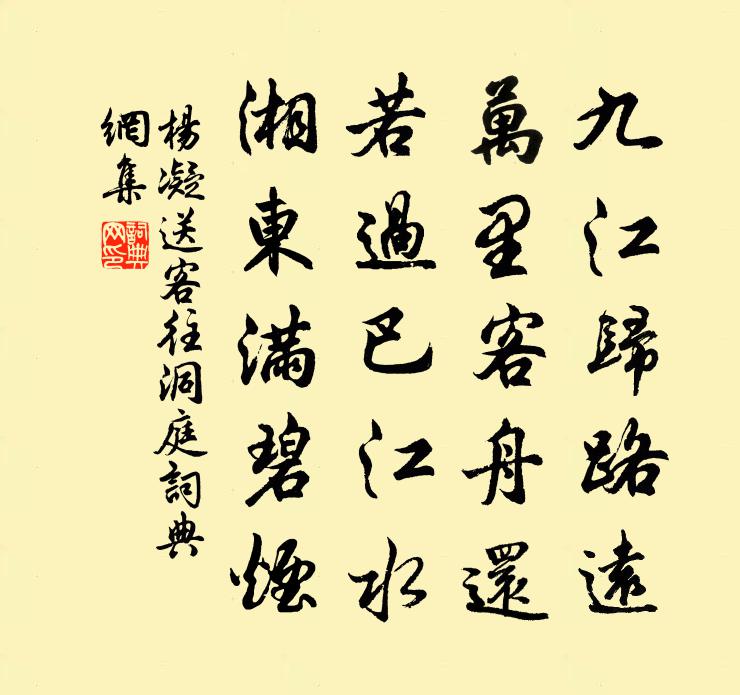 九江歸路遠
萬里客舟還
若過巴江水
湘東滿碧煙
楊凝送客往洞庭詞典
網集
詞典網印